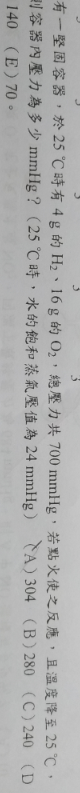 有一堅固容器，於25℃時有4g的H₂、16g的O₂，總壓力共700mmHg，若點火使之反應，且溫度降至25℃，
則容器內壓力為多少mmHg？（25℃時，水的飽和蒸氣壓值為24 mmHg） (A)304 (B)280 (C)240 (D)
140 (E)70。